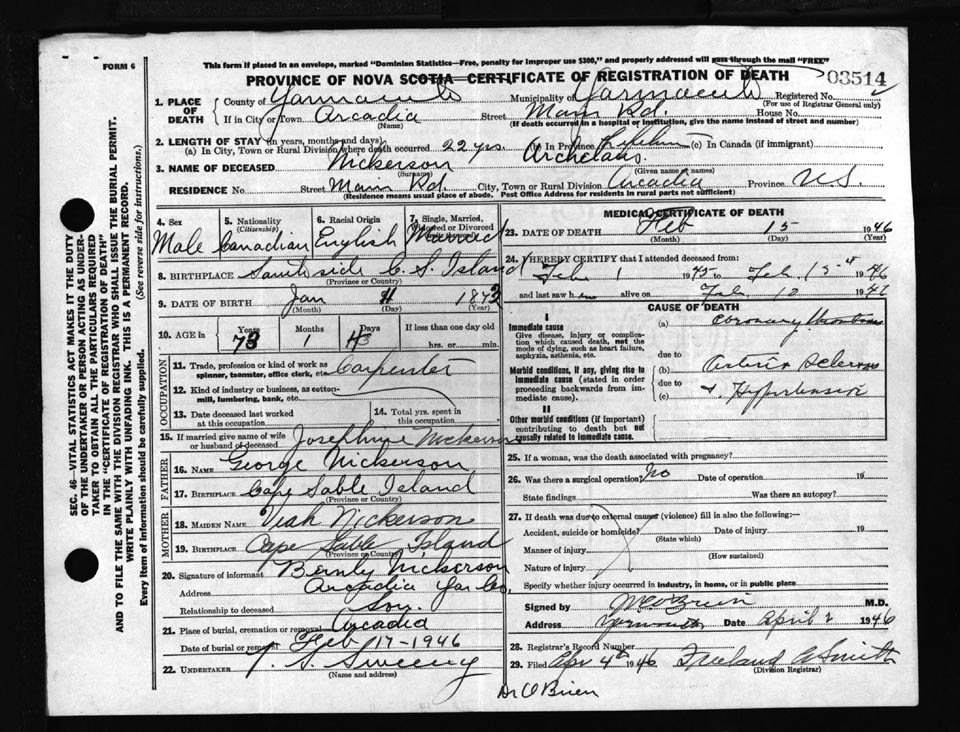 This form if placed in an envelope, marked "Dominion Statistics—Free, penalty for improper use $300," and properly addressed will pass through the mail "FREE"
FORM 6
PROVINCE OF NOVA SCOTIA—CERTIFICATE OF REGISTRATION OF DEATH
03514
1. PLACE OF DEATH
County of Yarmouth Municipality of Yarmouth Registered No.
(For use of Registrar General only)
If in City or Town Arcadia Street Main Rd. House No.
(Name) (If death occurred in a hospital or institution, give the name instead of street and number)
2. LENGTH OF STAY (in years, months and days)
(a) In City, Town or Rural Division where death occurred 22 yrs. (b) In Province Lifetime (c) In Canada (if immigrant)
3. NAME OF DECEASED Nickerson Archelaus.
(Surname) (Given name or names)
RESIDENCE No. Street Main Rd. City, Town or Rural Division Arcadia Province N.S.
(Residence means usual place of abode. Post Office Address for residents in rural parts not sufficient)
4. Sex
Male
5. Nationality (Citizenship)
Canadian
6. Racial Origin
English
7. Single, Married, Widowed or Divorced (write the word)
Married
8. BIRTHPLACE South side C. S. Island
(Province or Country)
9. DATE OF BIRTH Jan 4 1873
(Month) (Day) (Year)
10. AGE in
Years 73
Months 1
Days
If less than one day old
hrs. or min.
OCCUPATION
11. Trade, profession or kind of work as spinner, teamster, office clerk, etc. Carpenter
12. Kind of industry or business, as cotton-mill, lumbering, bank, etc.
13. Date deceased last worked at this occupation
14. Total yrs. spent in this occupation
15. If married give name of wife or husband of deceased Josephine Nickerson
FATHER
16. NAME George Nickerson
17. BIRTHPLACE Cape Sable Island
(Province or Country)
MOTHER
18. MAIDEN NAME Nickerson
19. BIRTHPLACE Cape Sable Island
(Province or Country)
20. Signature of informant Nickerson
Address Arcadia Yar Co,
Relationship to deceased Son.
21. Place of burial, cremation or removal Arcadia
Date of burial or removal Feb 17-1946
22. UNDERTAKER S. Sweeny
(Name and address)
MEDICAL CERTIFICATE OF DEATH
23. DATE OF DEATH Feb 15- 1946
(Month) (Day) (Year)
24. I HEREBY CERTIFY that I attended deceased from:
Feb 1 1945 to Feb. 15 1946
and last saw him alive on Feb. 1946
CAUSE OF DEATH
I
Immediate cause
Give disease, injury or complication which caused death, not the mode of dying, such as heart failure, asphyxia, asthenia, etc.
(a) Coronary thrombosis
due to
Morbid conditions, if any, giving rise to immediate cause (stated in order proceeding backwards from immediate cause)
(b) Arterio sclerosis
due to
(c) & Hypertension
II
Other morbid conditions (if important) contributing to death but not causally related to immediate cause.
25. If a woman, was the death associated with pregnancy?
26. Was there a surgical operation? no Date of operation 19
State findings Was there an autopsy?
27. If death was due to external causes (violence) fill in also the following:—
Accident, suicide or homicide? Date of injury 19
(State which)
Manner of injury
(How sustained)
Nature of injury
Specify whether injury occurred in industry, in home, or in public place
Signed by O'Brien M.D.
Address Yarmouth Date April 2 1946
28. Registrar's Record Number
29. Filed Apr 4th 1946 Smith
(Division Registrar)
Dr O'Brien
SEC. 46—VITAL STATISTICS ACT MAKES IT THE DUTY OF THE UNDERTAKER OR PERSON ACTING AS UNDERTAKER TO OBTAIN ALL THE PARTICULARS REQUIRED IN THE "CERTIFICATE OF REGISTRATION OF DEATH" AND TO FILE THE SAME WITH THE DIVISION REGISTRAR WHO SHALL ISSUE THE BURIAL PERMIT.
WRITE PLAINLY WITH UNFADING INK. THIS IS A PERMANENT RECORD.
Every item of information should be carefully supplied. (See reverse side for instructions.)